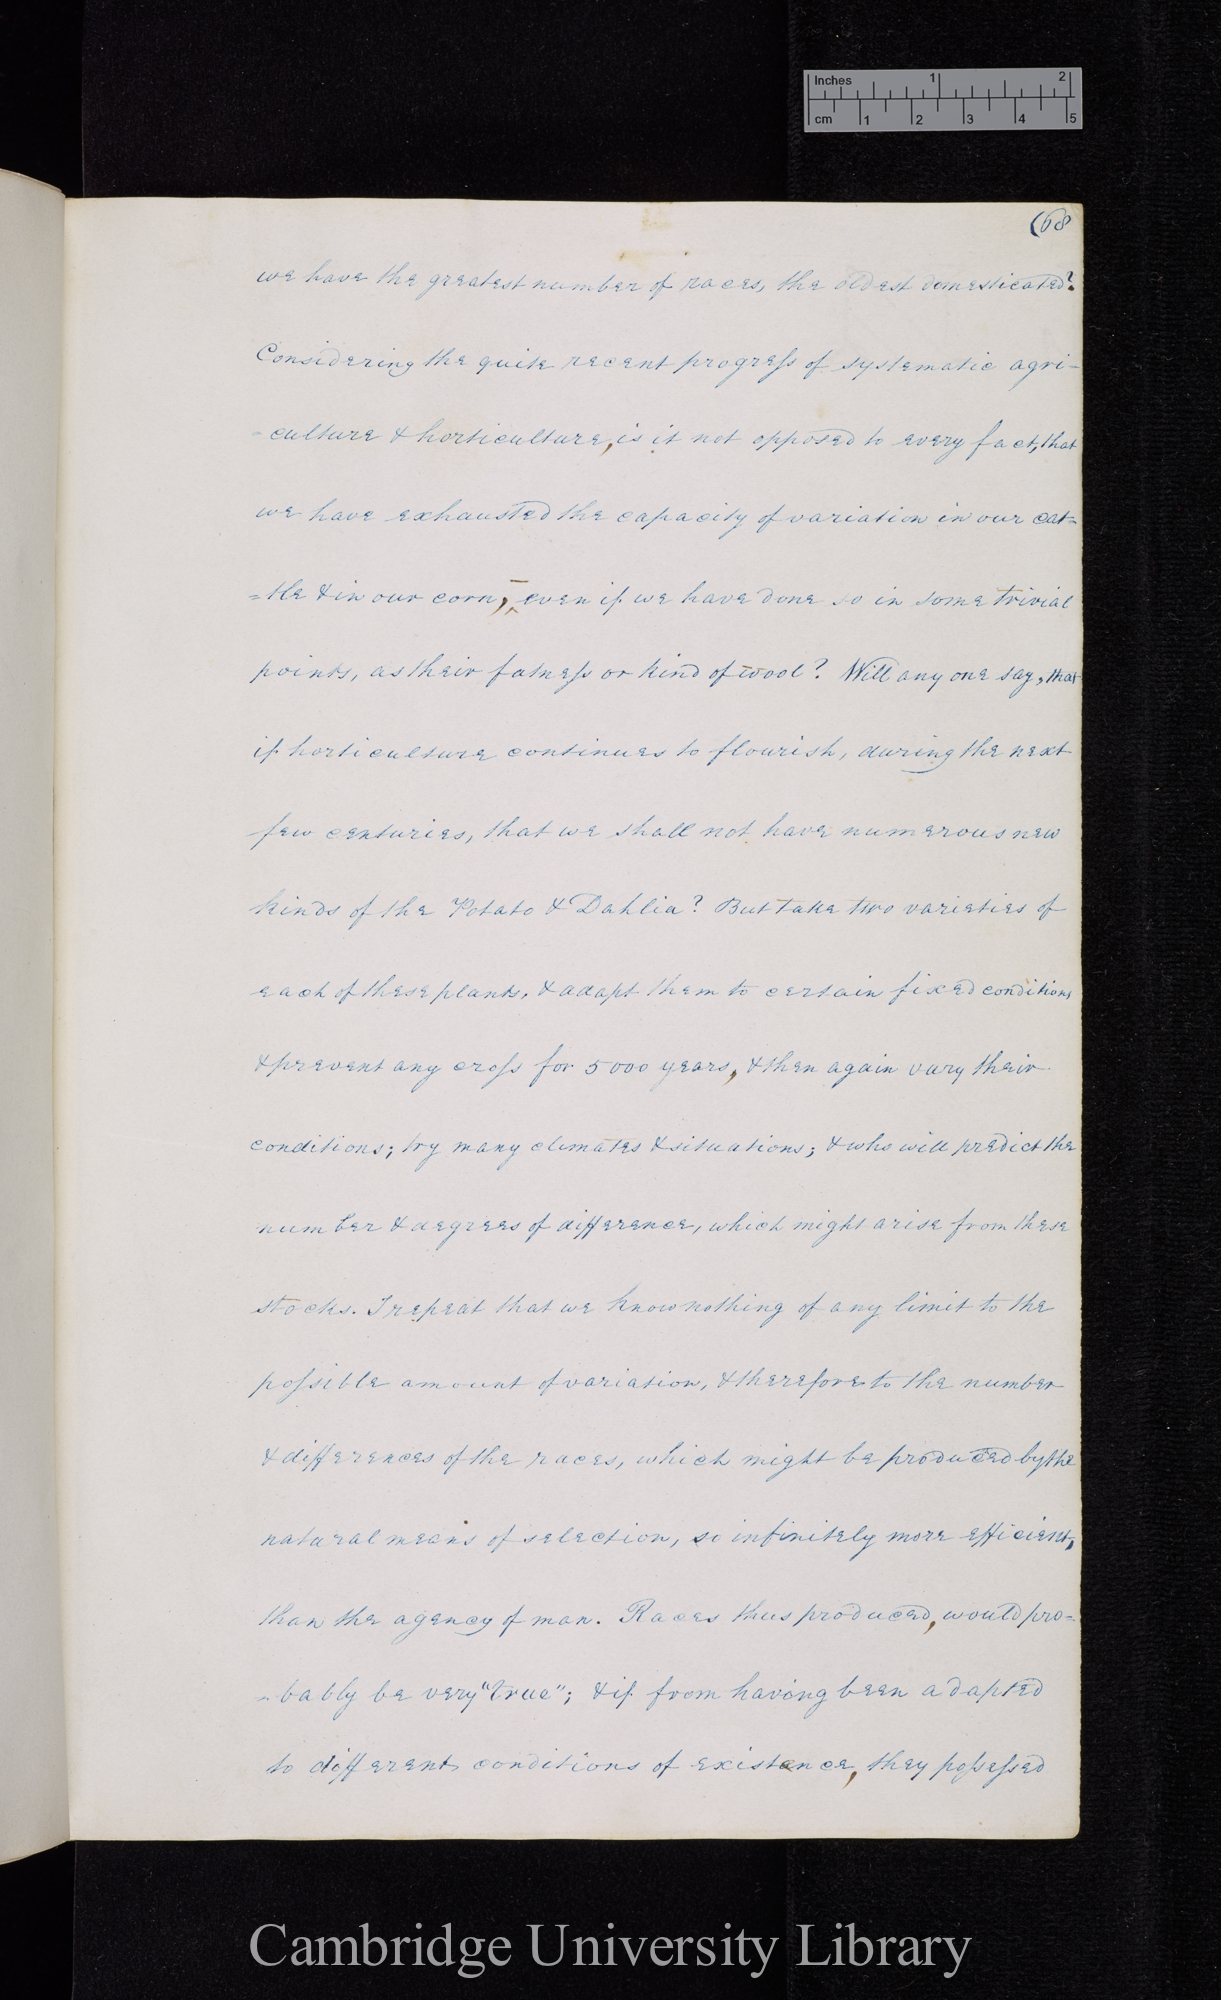 Inches 1 2
cm 1 2 3 4 5
(68
we have the greatest number of races, the oldest domesticated?
Considering the quite recent progress of systematic agri-
-culture & horticulture, is it not opposed to every fact, that
we have exhausted the capacity of variation in our cat=
=tle & in our corn, – even if we have done so in some trivial
points, as their fatness or kind of wool? Will any one say, that
if horticulture continues to flourish, during the next
few centuries, that we shall not have numerous new
kinds of the Potato & Dahlia? But take two varieties of
each of these plants, & adapt them to certain fixed conditions
& prevent any cross for 5000 years, & then again vary their
conditions; try many climates & situations; & who will predict the
number & degrees of difference, which might arise from these
stocks. I repeat that we know nothing of any limit to the
possible amount of variation, & therefore to the number
& differences of the races, which might be produced by the
natural means of selection, so infinitely more efficient,
than the agency of man. Races thus produced, would pro=
-bably be very "true"; & if from having been adapted
to different conditions of existence, they possessed
Cambridge University Library